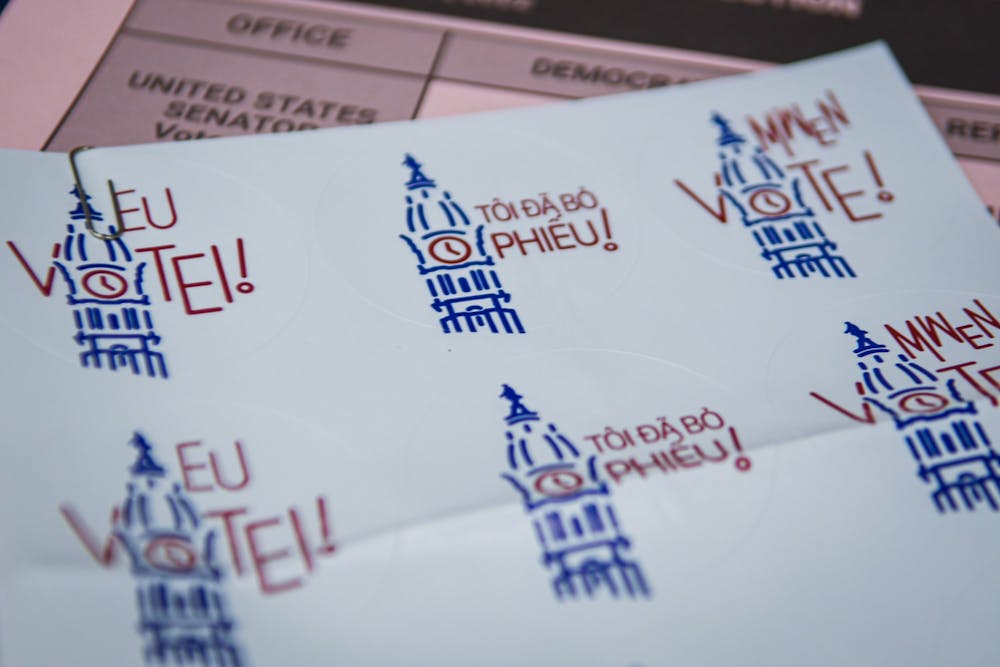 OFFICE
DEMOCRA
UNITED STATES
SENATOR
Vote
REP
EU
VOTEI!
TÔI ĐÃ BỎ
PHIẾU!
MWEN
VOTE!
EU
VOTEI!
TÔI ĐÃ BỎ
PHIẾU!
MWEN
VOTE